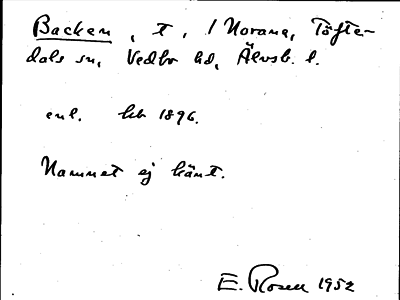 Backen, t, / Norane, Töfte-
dals sn, Vedbo hd, Älvsb. l.
enl. hb 1896.
Namnet ej känt.
E. Rosell 1952